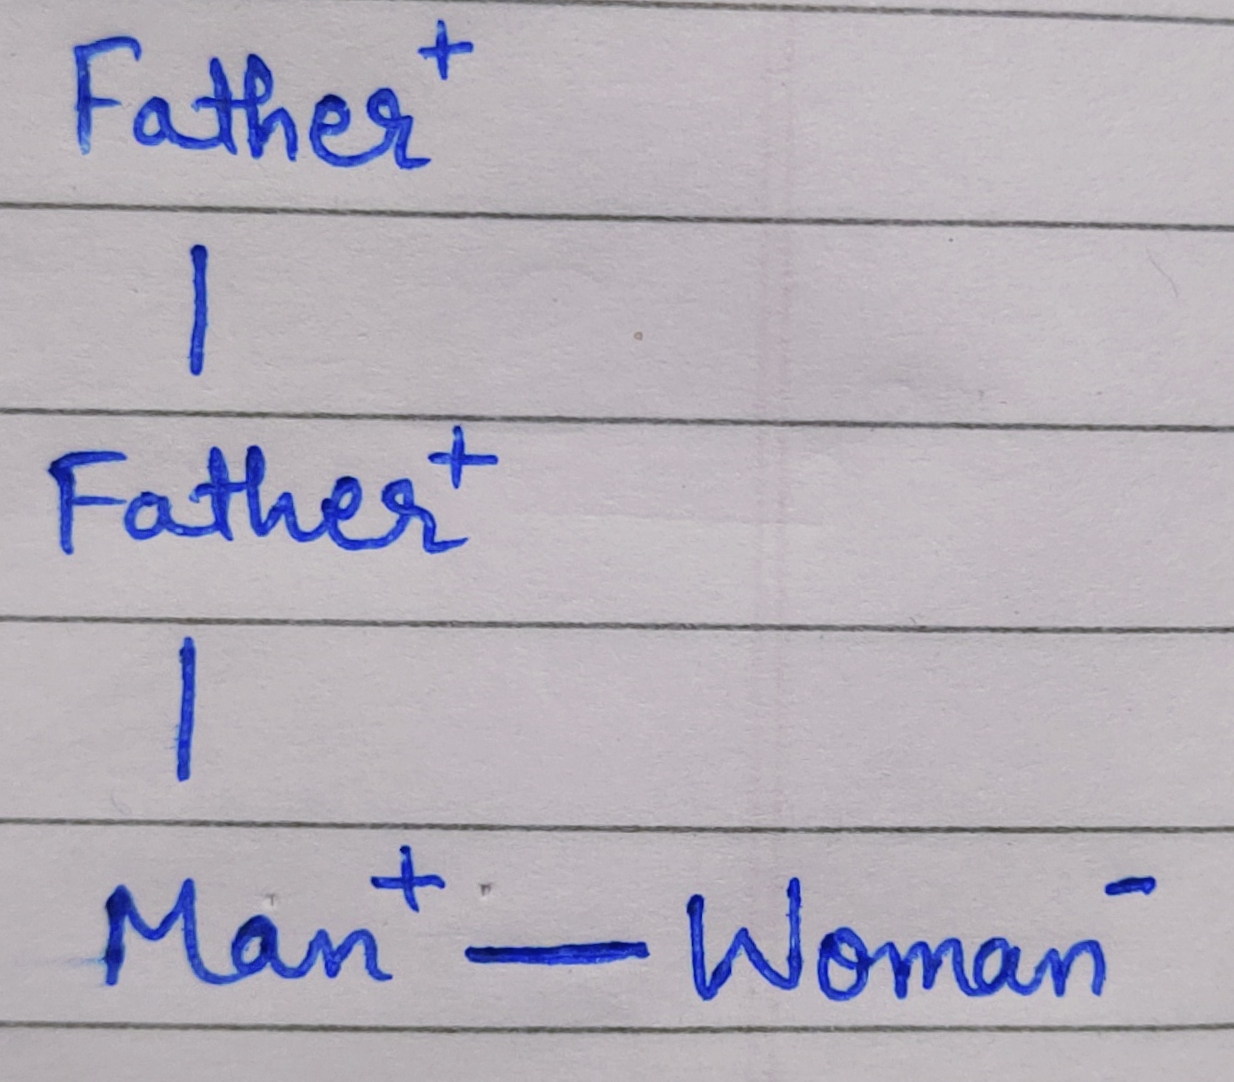 Father+
|
Father+
|
Man+ — Woman-